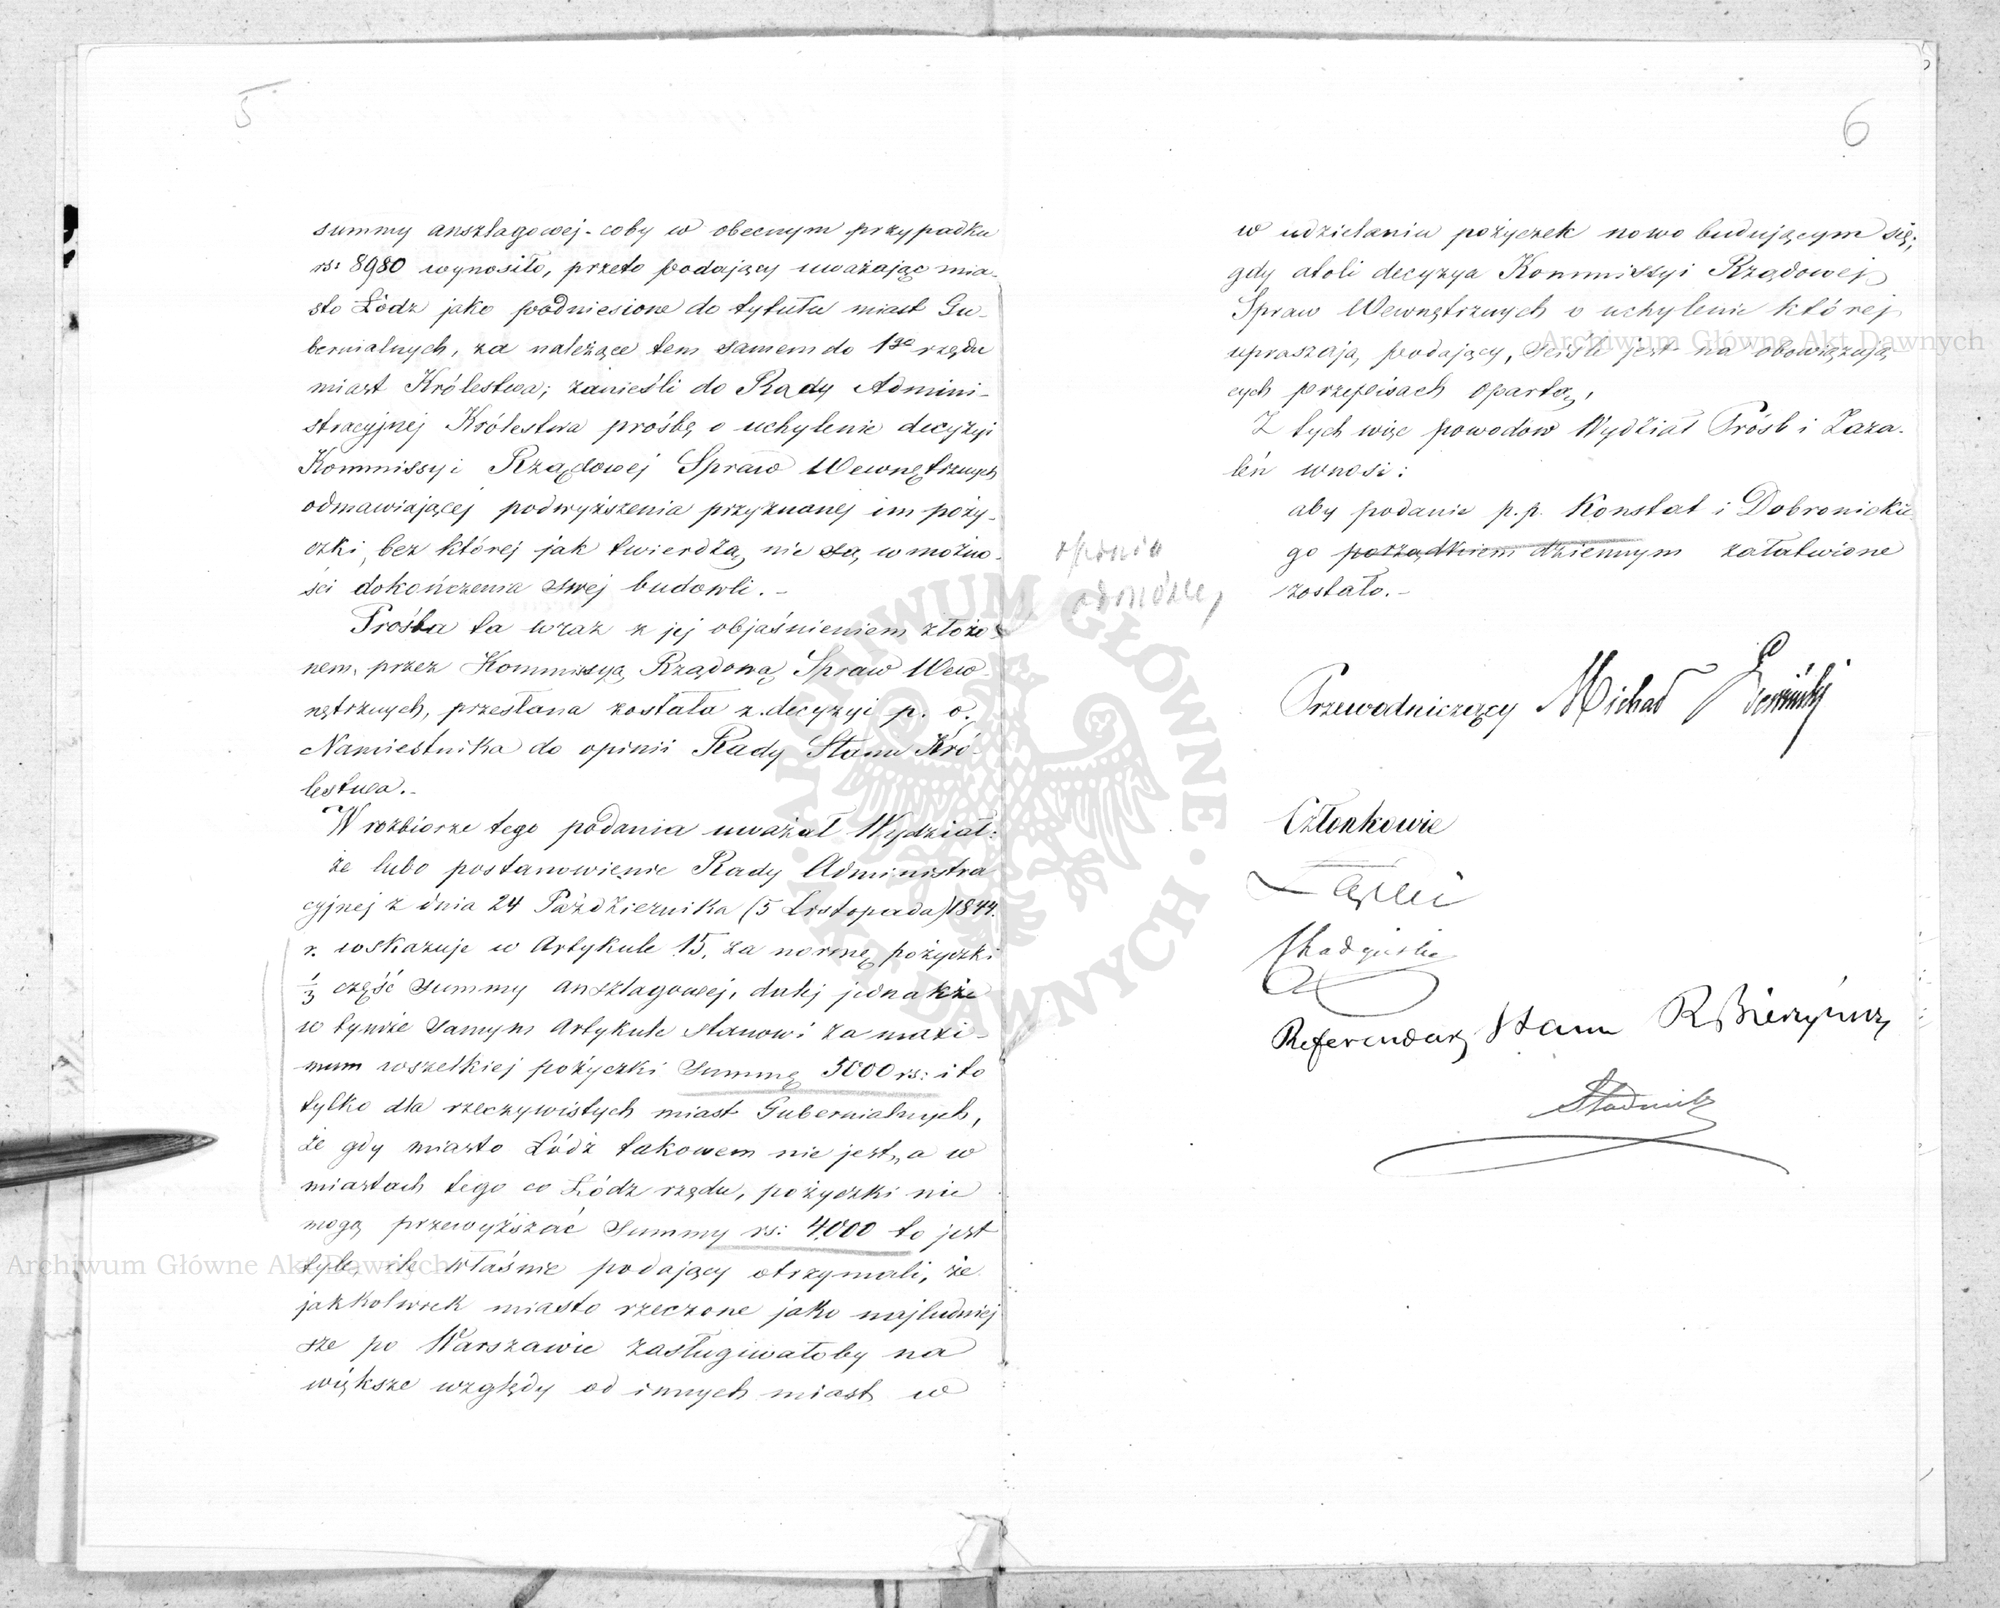 5
summy anszlagowej - coby w obecnym przypadku
rs: 8980 wynosiło, przeto podający uważając mia-
sto Łódz jako podniesione do tytułu miast Gu-
bernialnych, za należące tem samem do 1go rzędu
miast Królestwa; zanieśli do Rady Admini-
stracyjnej Królestwa prośbę o uchylenie decyzyi
Kommissyi Rządowej Spraw Wewnętrznych
odmawiającej podwyższenia przyznanej im poży-
czki, bez której jak twierdzą, nie są w możno-
ści dokończenia swej budowli. -
Prośba ta wraz z jej objaśnieniem złożo-
nem, przez Kommissyą Rządową Spraw Wew-
nętrznych, przesłana została z decyzyi p. o.
Namiestnika do opinii Rady Stanu Kró-
lestwa. -
W rozbiorze tego podania uważał Wydział:
że lubo postanowienie Rady Administra
cyjnej z dnia 24 Października (5 Listopada) 1844.
r. wskazuje w Artykule 15, za normę pożyczki
1/3 część summy anszlagowej, dalej jednakże
w tymże samym Artykule stanowi za maxi-
mum wszelkiej pożyczki summę 5000 rs: i to
tylko dla rzeczywistych miast Gubernialnych,
że gdy miasto Łódź takowem nie jest, a w
miastach tego co Łódz rzędu, pożyczki nie
mogą przewyższać summy rs: 4,000 to jest
tyle, ile właśnie podający otrzymali, że
jakkolwiek miasto rzeczone jako najludniej
sze po Warszawie zasługiwałoby na
większe względy od innych miast w
opinia
odmówić
6
w udzielania pożyczek nowo budującym się;
gdy atoli decyzya Kommissyi Rządowej
Spraw Wewnętrznych o uchylenie której
upraszają podający, ściśle jest na obowiązują
cych przepisach opartą,
Z tych więc powodów Wydział Próśb i Zaża-
leń wnosi:
aby podanie p.p. Konstat i Dobronickie
go porządkiem dziennym załatwione
zostało. -
Przewodniczący Michał
Członkowie
Łęski
Referendarz Stanu R.
Archiwum Główne Akt Dawnych
Archiwum Główne Akt Dawnych
ARCHIWUM GŁÓWNE AKT DAWNYCH